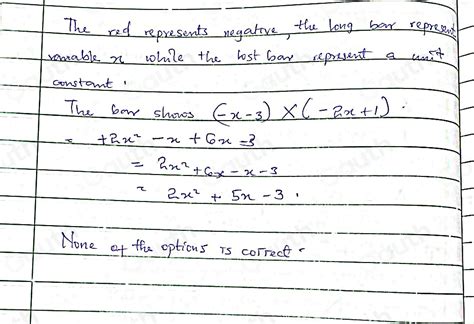 The red represents negative, the long bar represent
variable x while the lost bar represent a unit
constant.
The bar shows (-x-3) × (-2x+1).
= +2x² - x + 6x - 3
= 2x² + 6x - x - 3
= 2x² + 5x - 3.
None of the options is correct.